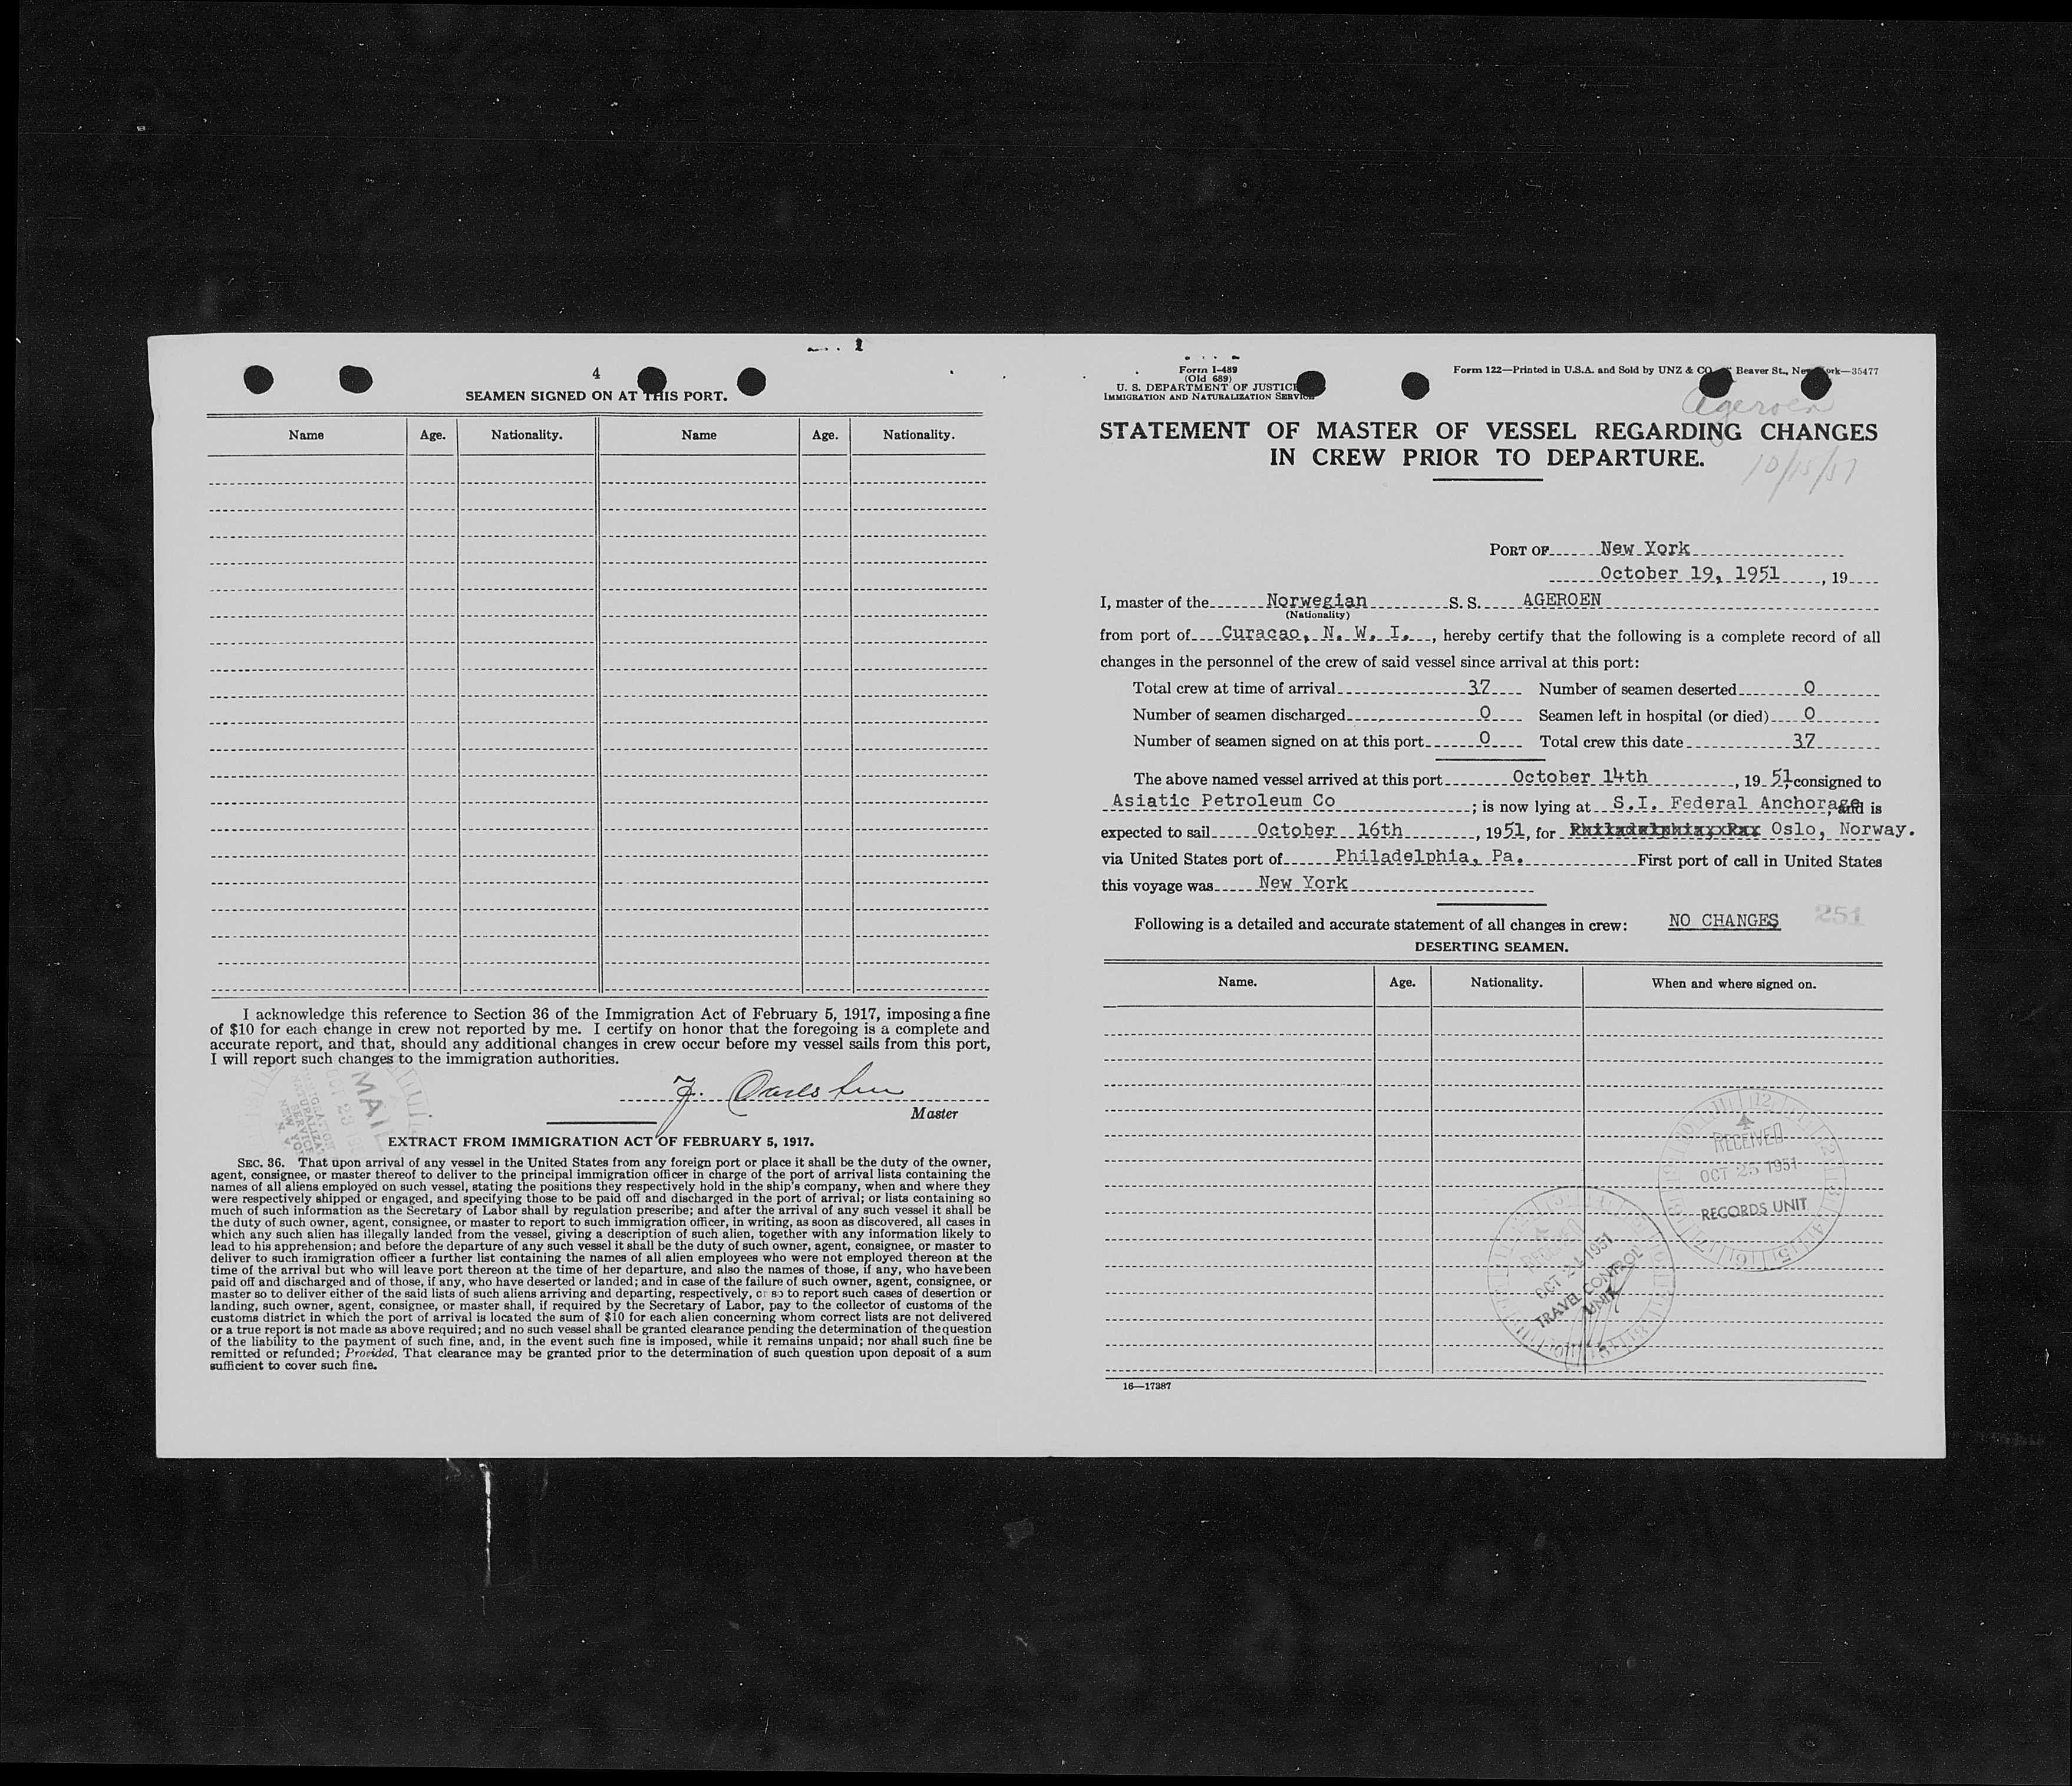 4
SEAMEN SIGNED ON AT THIS PORT.
Name Age. Nationality. Name Age. Nationality.
I acknowledge this reference to Section 36 of the Immigration Act of February 5, 1917, imposing a fine
of $10 for each change in crew not reported by me. I certify on honor that the foregoing is a complete and
accurate report, and that, should any additional changes in crew occur before my vessel sails from this port,
I will report such changes to the immigration authorities.
Master
MAIL
EXTRACT FROM IMMIGRATION ACT OF FEBRUARY 5, 1917.
SEC. 36. That upon arrival of any vessel in the United States from any foreign port or place it shall be the duty of the owner,
agent, consignee, or master thereof to deliver to the principal immigration officer in charge of the port of arrival lists containing the
names of all aliens employed on such vessel, stating the positions they respectively hold in the ship's company, when and where they
were respectively shipped or engaged, and specifying those to be paid off and discharged in the port of arrival; or lists containing so
much of such information as the Secretary of Labor shall by regulation prescribe; and after the arrival of any such vessel it shall be
the duty of such owner, agent, consignee, or master to report to such immigration officer, in writing, as soon as discovered, all cases in
which any such alien has illegally landed from the vessel, giving a description of such alien, together with any information likely to
lead to his apprehension; and before the departure of any such vessel it shall be the duty of such owner, agent, consignee, or master to
deliver to such immigration officer a further list containing the names of all alien employees who were not employed thereon at the
time of the arrival but who will leave port thereon at the time of her departure, and also the names of those, if any, who have been
paid off and discharged and of those, if any, who have deserted or landed; and in case of the failure of such owner, agent, consignee, or
master so to deliver either of the said lists of such aliens arriving and departing, respectively, or so to report such cases of desertion or
landing, such owner, agent, consignee, or master shall, if required by the Secretary of Labor, pay to the collector of customs of the
customs district in which the port of arrival is located the sum of $10 for each alien concerning whom correct lists are not delivered
or a true report is not made as above required; and no such vessel shall be granted clearance pending the determination of the question
of the liability to the payment of such fine, and, in the event such fine is imposed, while it remains unpaid; nor shall such fine be
remitted or refunded; Provided, That clearance may be granted prior to the determination of such question upon deposit of a sum
sufficient to cover such fine.
Form I-489
(Old 689)
U. S. DEPARTMENT OF JUSTICE
IMMIGRATION AND NATURALIZATION SERVICE
Form 122—Printed in U.S.A. and Sold by UNZ & CO. Beaver St., New York—35477
Ageroen
STATEMENT OF MASTER OF VESSEL REGARDING CHANGES
IN CREW PRIOR TO DEPARTURE.
10/15/51
PORT OF New York
October 19, 1951, 19
I, master of the Norwegian S. S. AGEROEN
(Nationality)
from port of Curacao, N. W. I., hereby certify that the following is a complete record of all
changes in the personnel of the crew of said vessel since arrival at this port:
Total crew at time of arrival 37 Number of seamen deserted 0
Number of seamen discharged 0 Seamen left in hospital (or died) 0
Number of seamen signed on at this port 0 Total crew this date 37
The above named vessel arrived at this port October 14th, 1951, consigned to
Asiatic Petroleum Co; is now lying at S.I. Federal Anchorage, and is
expected to sail October 16th, 1951, for Oslo, Norway.
via United States port of Philadelphia, Pa. First port of call in United States
this voyage was New York
Following is a detailed and accurate statement of all changes in crew: NO CHANGES 251
DESERTING SEAMEN.
Name. Age. Nationality. When and where signed on.
RECEIVED
OCT 25 1951
RECORDS UNIT
RECEIVED
1951
TRAVEL CONTROL
UNIT
16—17387